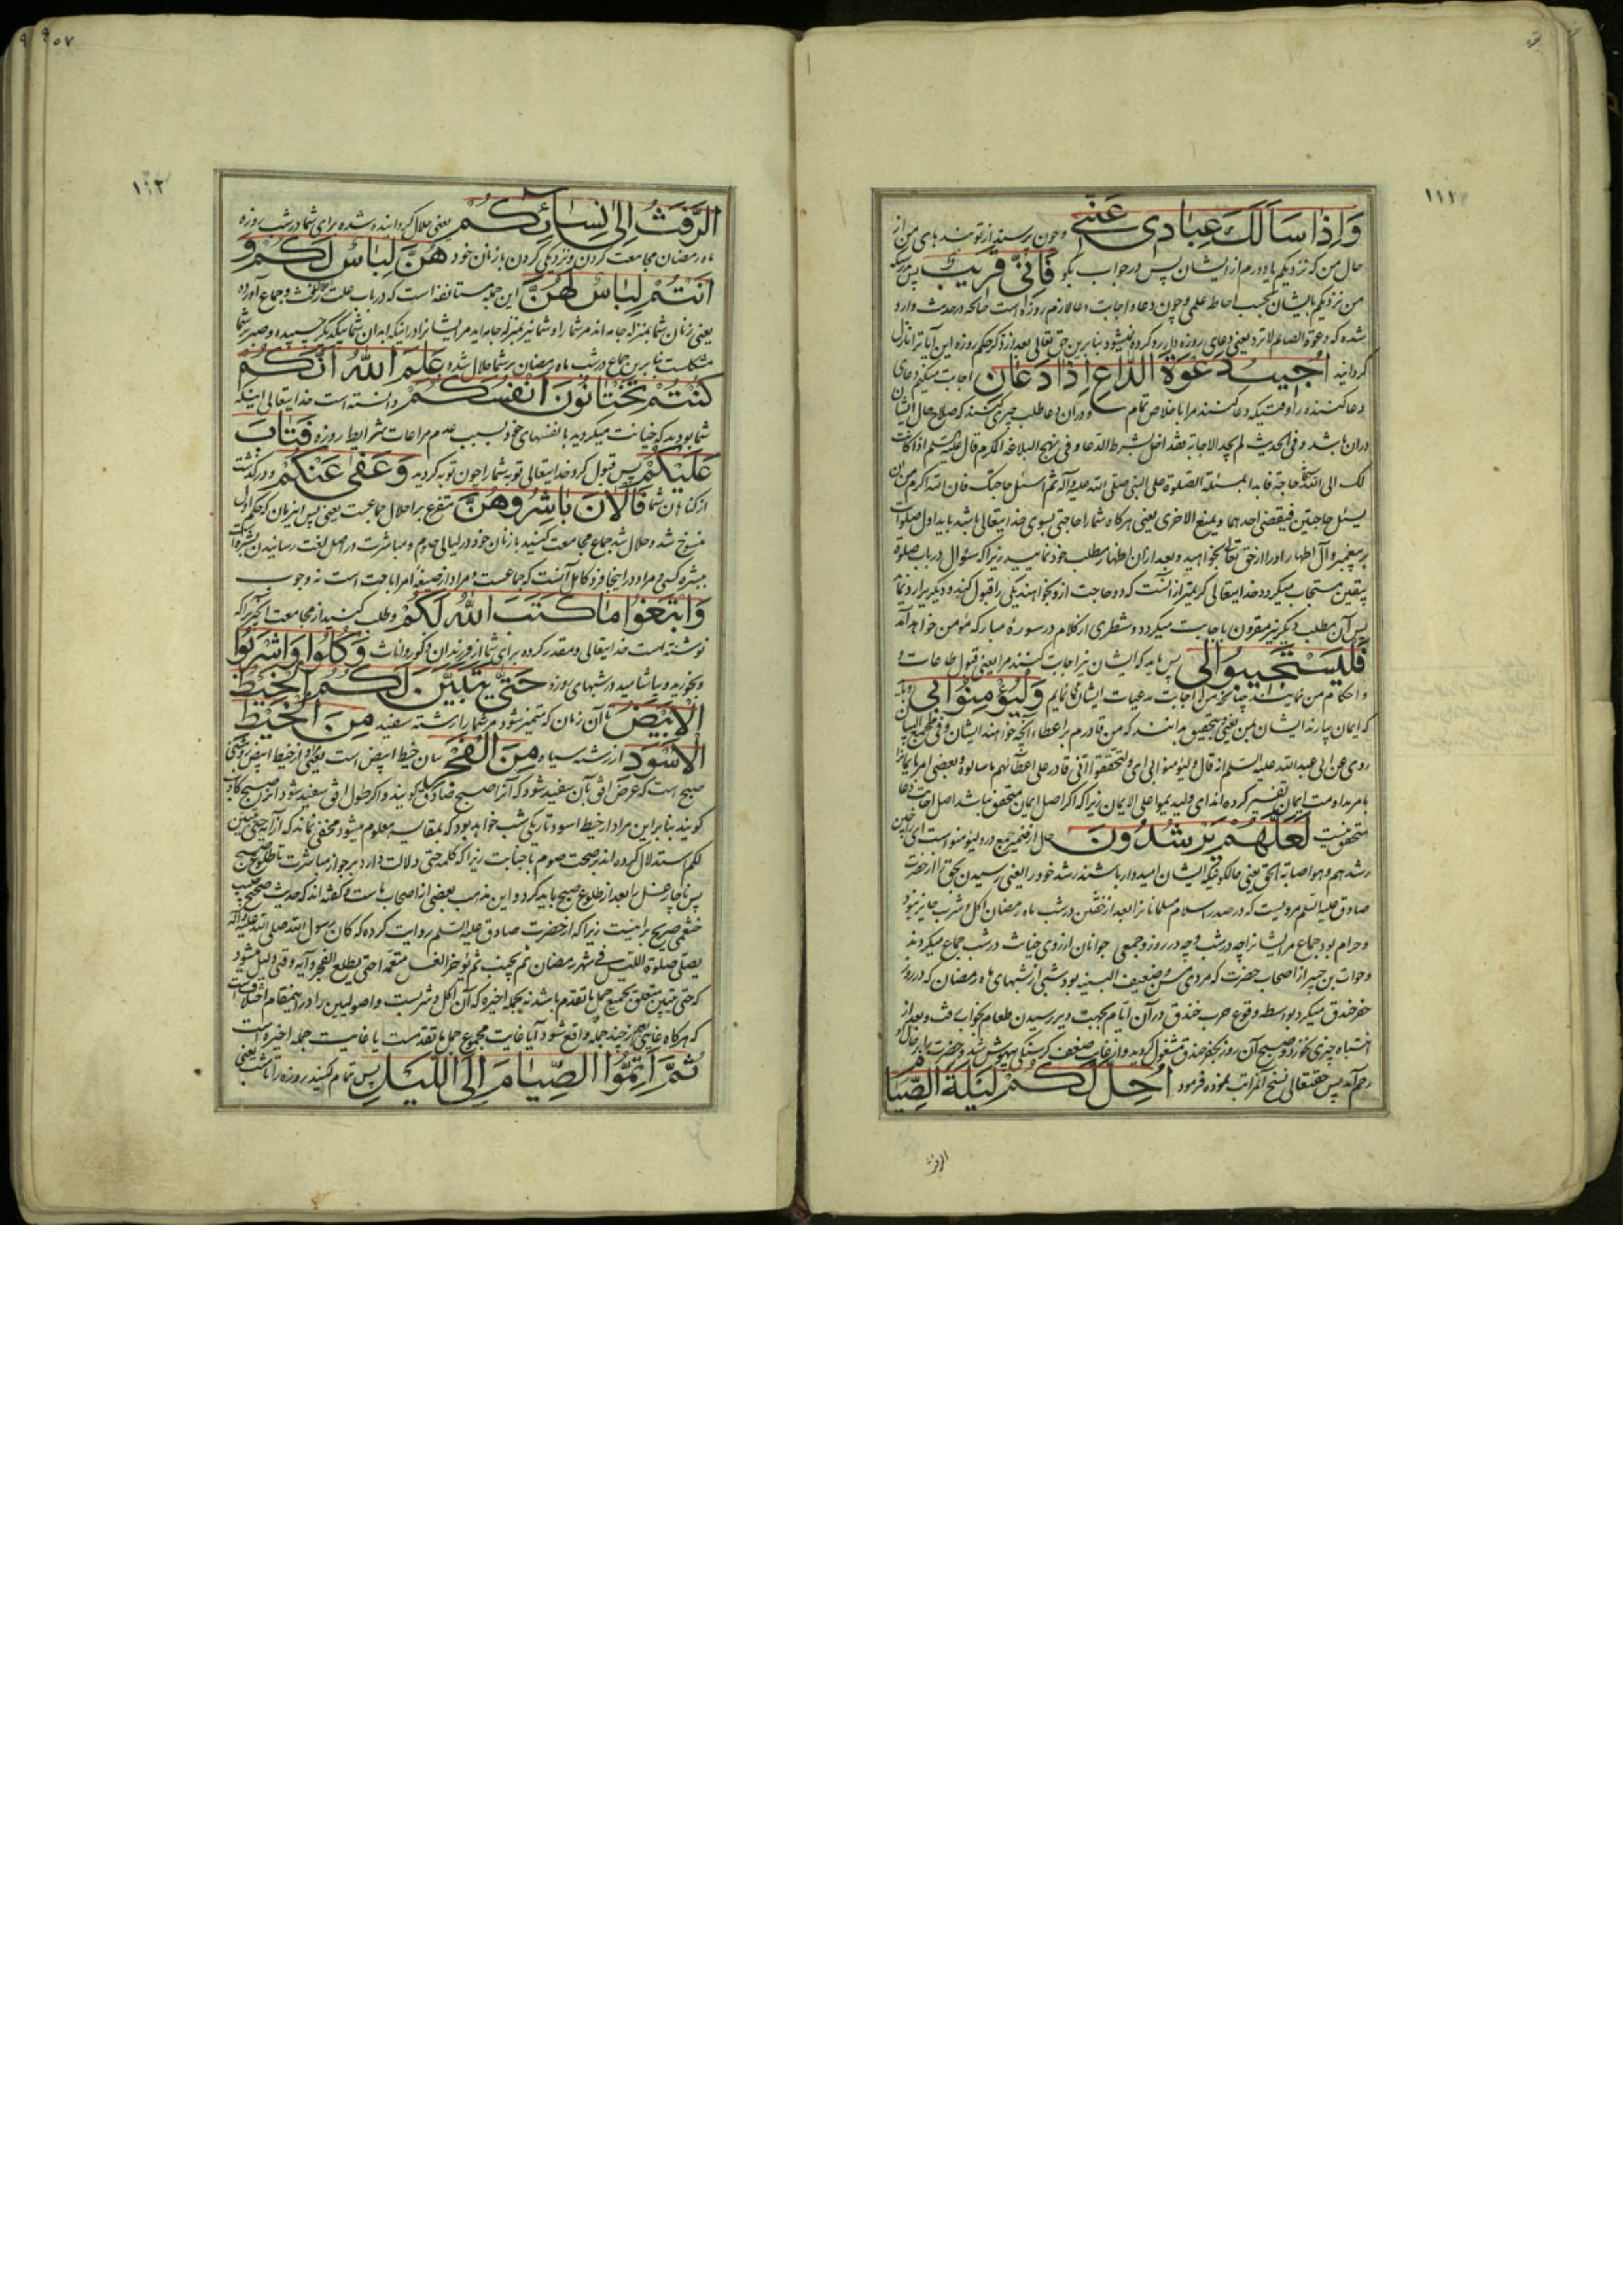 ١١٢
وَاِذٰا سَاَلَكَ عِبٰادى عَنّى و چون پرسند از تو بندهای من از
حال من که نزدیکم یا دورم از ایشان پس در جواب بگو فَاِنّى قَريبٌ پس بدرستیکه
من نزدیکم بایشان بحسب احاطه علمی و چون دعا و اجابت دعا لازم روزه است چنانچه در حدیث وارد
شده که دعوة الصائم لا ترد یعنی دعای روزه دار رد کرده نمیشود بنابرین حق تعالی بعد از ذکر حکم روزه این آیه را نازل
گردانید اُجيبُ دَعْوَةَ الدّٰاعِ اِذٰا دَعٰانِ اجابت میکنم دعای
دعا کننده را وقتیکه دعا کنند مرا باخلاص تمام و در آن دعا طلب چیزی کنند که صلاح حال ایشان
در آن باشد و فی الحدیث لم یجد الاجابة فقد اخل بشرط الدعا و فی نهج البلاغه المکرم قال علیه السلم اذا کانت
لک الی الله حاجة فابدا بمسئلة الصلوة علی النبی صلی الله علیه و آله ثم اسئل حاجتک فان الله اکرم من ان
یسئل حاجتین فیقضی احدیهما و یمنع الاخری یعنی هرکاه شما را حاجتی بسوی خدایتعالی باشد باید اول صلوات
بر پیغمبر و آل اطهار او را از حق تعالی بخواهید و بعد از آن اظهار مطلب خود نمایید زیرا که سئوال در باب صلوة
بیقین مستجاب میکردد خدایتعالی کریمتر از آنست که دو حاجت ازو بخواهند یکی را قبول کند و دیکریرا رد نماید
پس آن مطلب دیکر نیز مقرون باجابت میکردد و شطری از کلام در سوره مبارکه مؤمن خواهد آمد
فَلْيَسْتَجيبُوا لى پس باید که ایشان نیز اجابت کنند مرا یعنی قبول طاعات و
و احکام من نمایند چنانچه من اجابت مدعیات ایشان می نمایم وَلْيُؤْمِنُوا بى و باید
که ایمان بیارند ایشان بمن یعنی بتحقیق بدانند که من قادرم بر اعطاء آنچه خواهند ایشان و فی مجمع البیان
روی عن ابی عبدالله علیه السلم انه قال ولیؤمنوا بی ای و لیتحققوا انی قادر علی اعطائهم ما سالوه و بعضی امر بایمانرا
بامر بمداومت ایمان تفسیر کرده اند ای ولیدیموا علی الایمان زیرا که اکر اصل ایمان متحقق نباشد اصل اجابت دعا
متحقق نیست لَعَلَّهُمْ يَرْشُدُونَ حال از ضمیر جمع در ولیؤمنوا است ای راجین
رشدهم و هو اصابة الحق یعنی حالکونیکه ایشان امیدوار باشند رشد خود را یعنی رسیدن بحق را از حضرت
صادق علیه السلم مرویست که در صدر اسلام مسلمانانرا بعد از خفتن در شب ماه رمضان اکل و شرب جایز نبود
و حرام بود جماع مر ایشانرا چه در شب و چه در روز و جمعی جوانان از روی خیانت در شب جماع میکردند
و خوات بن جبیر از اصحاب حضرت که مردی مسن و ضعیف البنیه بود شبی از شبهای ماه رمضان که در روز
حفر خندق میکرد بواسطه وقوع حرب خندق در آن ایام بجهت دیر رسیدن طعام بخواب رفت و بعد از
انتباه چیزی نخورد و صبح آن روز بحفر خندق مشغول کردید و از غایت ضعف کرسنکی بیهوش شد و حضرت را بر حال او
رحم آمد پس حقتعالی نسخ آن مراتب نموده فرمود اُحِلَّ لَكُمْ لَيْلَةَ الصِّيٰامِ
الرفث
٩٥٧
١١٢
الرَّفَثُ اِلىٰ نِسٰائِكُمْ یعنی حلال کردانیده شده برای شما در شب روزه
ماه رمضان مجامعت کردن و نزدیکی کردن با زنان خود هُنَّ لِبٰاسٌ لَكُمْ وَ
اَنْتُمْ لِبٰاسٌ لَهُنَّ این جمله مستانفه است که در باب علت رفث و جماع آورده
یعنی زنان شما بمنزله جامه اند مر شما را و شما نیز بمنزله جامه اید مر ایشانرا در اینکه ابدان شما بیکدیکر چسپیده و صبر بر شما
مشکلست بنابرین جماع در شب ماه رمضان بر شما حلال شده عَلِمَ اللّٰهُ اَنَّكُمْ
كُنْتُمْ تَخْتٰانُونَ اَنْفُسَكُمْ دانسته است خدایتعالی اینکه
شما بودید که خیانت میکردید بانفسهای خود بسبب عدم مراعات شرایط روزه فَتٰابَ
عَلَيْكُمْ پس قبول کرد خدایتعالی توبه شما را چون توبه کردید وَعَفىٰ عَنْكُمْ و در کذشت
از کناهان شما فَالْاٰنَ بٰاشِرُوهُنَّ متفرع بر احلال جماعست یعنی پس این زمان که حکم اول
منسوخ شد و حلال شد جماع مجامعت کنید با زنان خود در لیالی صوم و مباشرت در اصل لغت رسانیدن بشره است
ببشره کسی و مراد در اینجا فرد کامل آنست که جماعست و مراد از صیغه امر اباحت است نه وجوب
وَابْتَغُوا مٰا كَتَبَ اللّٰهُ لَكُمْ و طلب کنید از مجامعت آنچیزیرا که
نوشته است خدایتعالی و مقدر کرده برای شما از فرزندان ذکور و اناث وَكُلُوا وَاشْرَبُوا
و بخورید و بیاشامید در شبهای روزه حَتّىٰ يَتَبَيَّنَ لَكُمُ الْخَيْطُ
الْاَبْيَضُ تا آن زمان که متمیز شود مر شما را رشته سفید مِنَ الْخَيْطِ
الْاَسْوَدِ از رشته سیاه مِنَ الْفَجْرِ بیان خیط ابیض است یعنی مراد از خیط ابیض روشنی
صبح است که عرض افق بآن سفید شود که آنرا صبح صادق کویند و اکر طول افق سفید شود آنرا صبح کاذب
کویند بنابراین مراد از خیط اسود تاریکی شب خواهد بود که بمقایسه معلوم میشود مخفی نماند که از آیه حتی یتبین
لکم استدلال کرده اند بر صحت صوم با جنابت زیرا که کلمه حتی دلالت دارد بر جواز مباشرت تا طلوع صبح
پس ناچار غسل را بعد از طلوع صبح باید کرد و این مذهب بعضی از اصحاب ماست و کفته اند که حدیث صحیح حبیب
خثعمی صریح براینست زیرا که از حضرت صادق علیه السلم روایت کرده که کان رسول الله صلی الله علیه و آله
یصلی صلوة اللیل فی شهر رمضان ثم یجنب ثم یؤخر الغسل متعمدا حتی یطلع الفجر و آیه وقتی دلیل میشود
که حتی یتبین متعلق بجمیع جمل ما تقدم باشد نه بجمله اخیره که آن اکل و شربست و اصولیین را در اینمقام اختلافست
که هرکاه غایتی بعد از چند جمله واقع شود آیا غایت مجموع جمل ما تقدمست یا غایت جمله اخیره است
ثُمَّ اَتِمُّوا الصِّيٰامَ اِلَى اللَّيْلِ پس تمام کنید روزه را تا شب یعنی